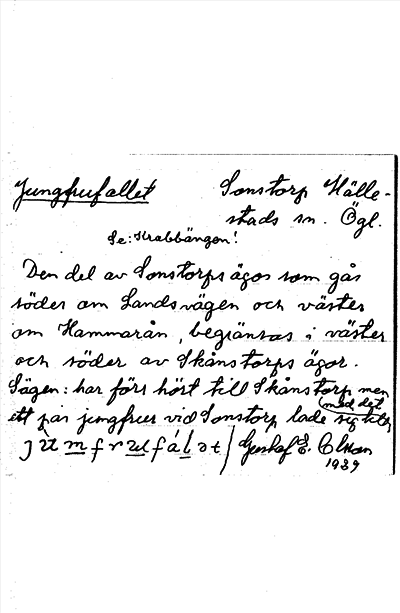 Jungfrufallet Sonstorp Hälle-
stads sn. Ögl.
Se: Krabbängen!
Den del av Sonstorps ägor som går
söder om Landsvägen och väster
om Hammarån, begränsas i väster
och söder av Skånstorps ägor.
Sägen: har förs hört till Skånstorp men
med det
ett par jungfrur vid Sonstorp lade sig till
Gustaf E. Olsson
1939